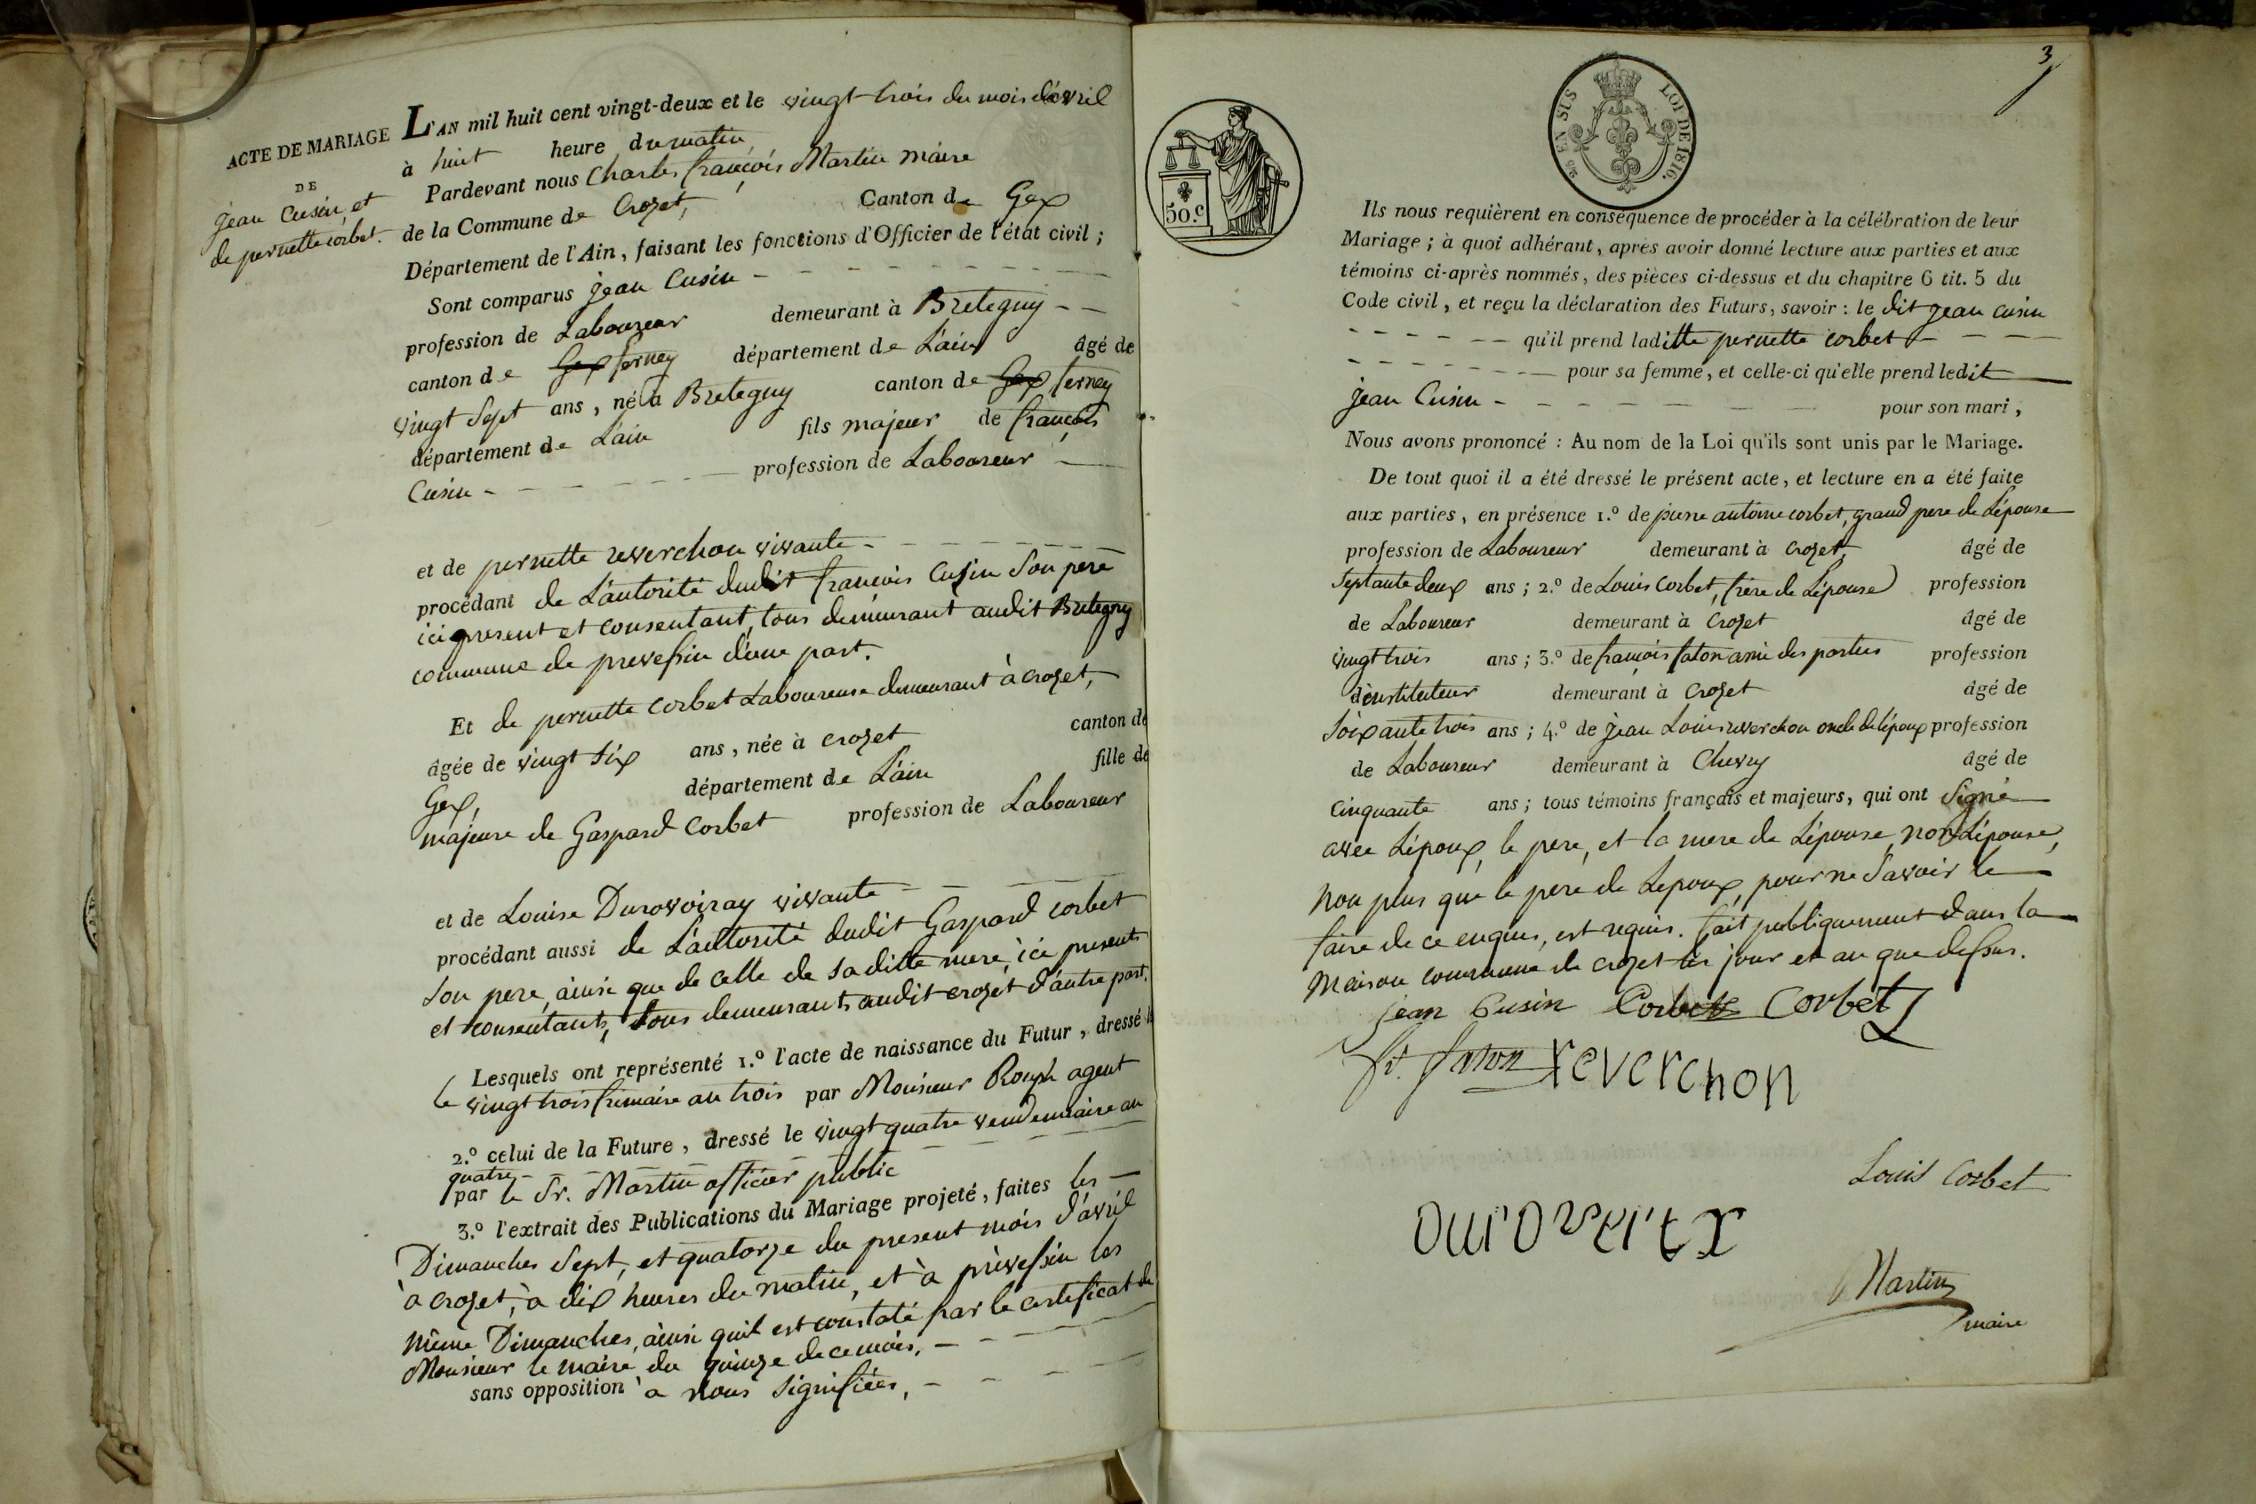 ACTE DE MARIAGE
DE
jean Cusin, et
de pernette corbet.
L'AN mil huit cent vingt-deux et le vingt-trois du mois d'avril
à huit heure du matin,
Pardevant nous Charles françois Martin maire
de la Commune de Crozet, Canton de Gex
Département de l'Ain, faisant les fonctions d'Officier de l'état civil ;
Sont comparus jean Cusin
profession de Laboureur demeurant à Bretegny
canton de Gex ferney département de L'ain âgé de
vingt Sept ans, né à Bretegny canton de Gex ferney
département de L'ain fils majeur de françois
Cusin profession de Laboureur
et de pernette reverchon vivante
procédant de L'autorité dudit françois Cusin Son pere
ici present et consentant, tous demeurant audit Bretegny
commune de prevessin d'une part.
Et de pernette corbet Laboureuse demeurant à crozet,
âgée de vingt six ans, née à crozet canton de
Gex, département de L'ain fille de
majeure de Gaspard Corbet profession de Laboureur
et de Louise Durovoiray vivante
procédant aussi de L'autorité dudit Gaspard corbet
Son pere, ainsi que de celle de sa ditte mere, ici presents
et consentants, tous demeurants audit crozet d'autre part.
Lesquels ont représenté 1.º l'acte de naissance du Futur, dressé le
le vingt trois frimaire an trois par Monsieur Rouph agent
2.º celui de la Future, dressé le vingt quatre vendemiaire an
quatre
par le Sr. Martin officier public
3.º l'extrait des Publications du Mariage projeté, faites les
Dimanches Sept, et quatorze du present mois d'avril
à crozet, à dix heures du matin, et à prévessin les
même Dimanches, ainsi quil est constaté par le certificat de
Monsieur le maire du quinze de ce mois,
sans opposition à nous signifiées,
3
50.c
25 EN SUS LOI DE 1816.
Ils nous requièrent en conséquence de procéder à la célébration de leur
Mariage ; à quoi adhérant, après avoir donné lecture aux parties et aux
témoins ci-après nommés, des pièces ci-dessus et du chapitre 6 tit. 5 du
Code civil, et reçu la déclaration des Futurs, savoir : le dit jean cusin
qu'il prend laditte pernette corbet
pour sa femme, et celle-ci qu'elle prend ledit
jean Cusin pour son mari,
Nous avons prononcé : Au nom de la Loi qu'ils sont unis par le Mariage.
De tout quoi il a été dressé le présent acte, et lecture en a été faite
aux parties, en présence 1.º de pierre antoine corbet, grand pere de L'épouse
profession de Laboureur demeurant à crozet, âgé de
septante deux ans ; 2.º de Louis corbet, frère de L'épouse profession
de Laboureur demeurant à crozet âgé de
vingt trois ans ; 3.º de françois faton ami des parties profession
d'instituteur demeurant à crozet âgé de
Soixante trois ans ; 4.º de jean Louis reverchon oncle de l'époux profession
de Laboureur demeurant à Chevry âgé de
cinquante ans ; tous témoins français et majeurs, qui ont Signé
avec L'époux, le pere, et la mere de L'épouse, non L'épouse,
non plus que le pere de Lepoux, pour ne Savoir le
faire de ce enquis, et requis. fait publiquement dans la
Maison commune de crozet les jour et an que dessus.
jean Cusin Corbet Corbet
fs. faton reverchon
Louis Corbet
Martin
maire